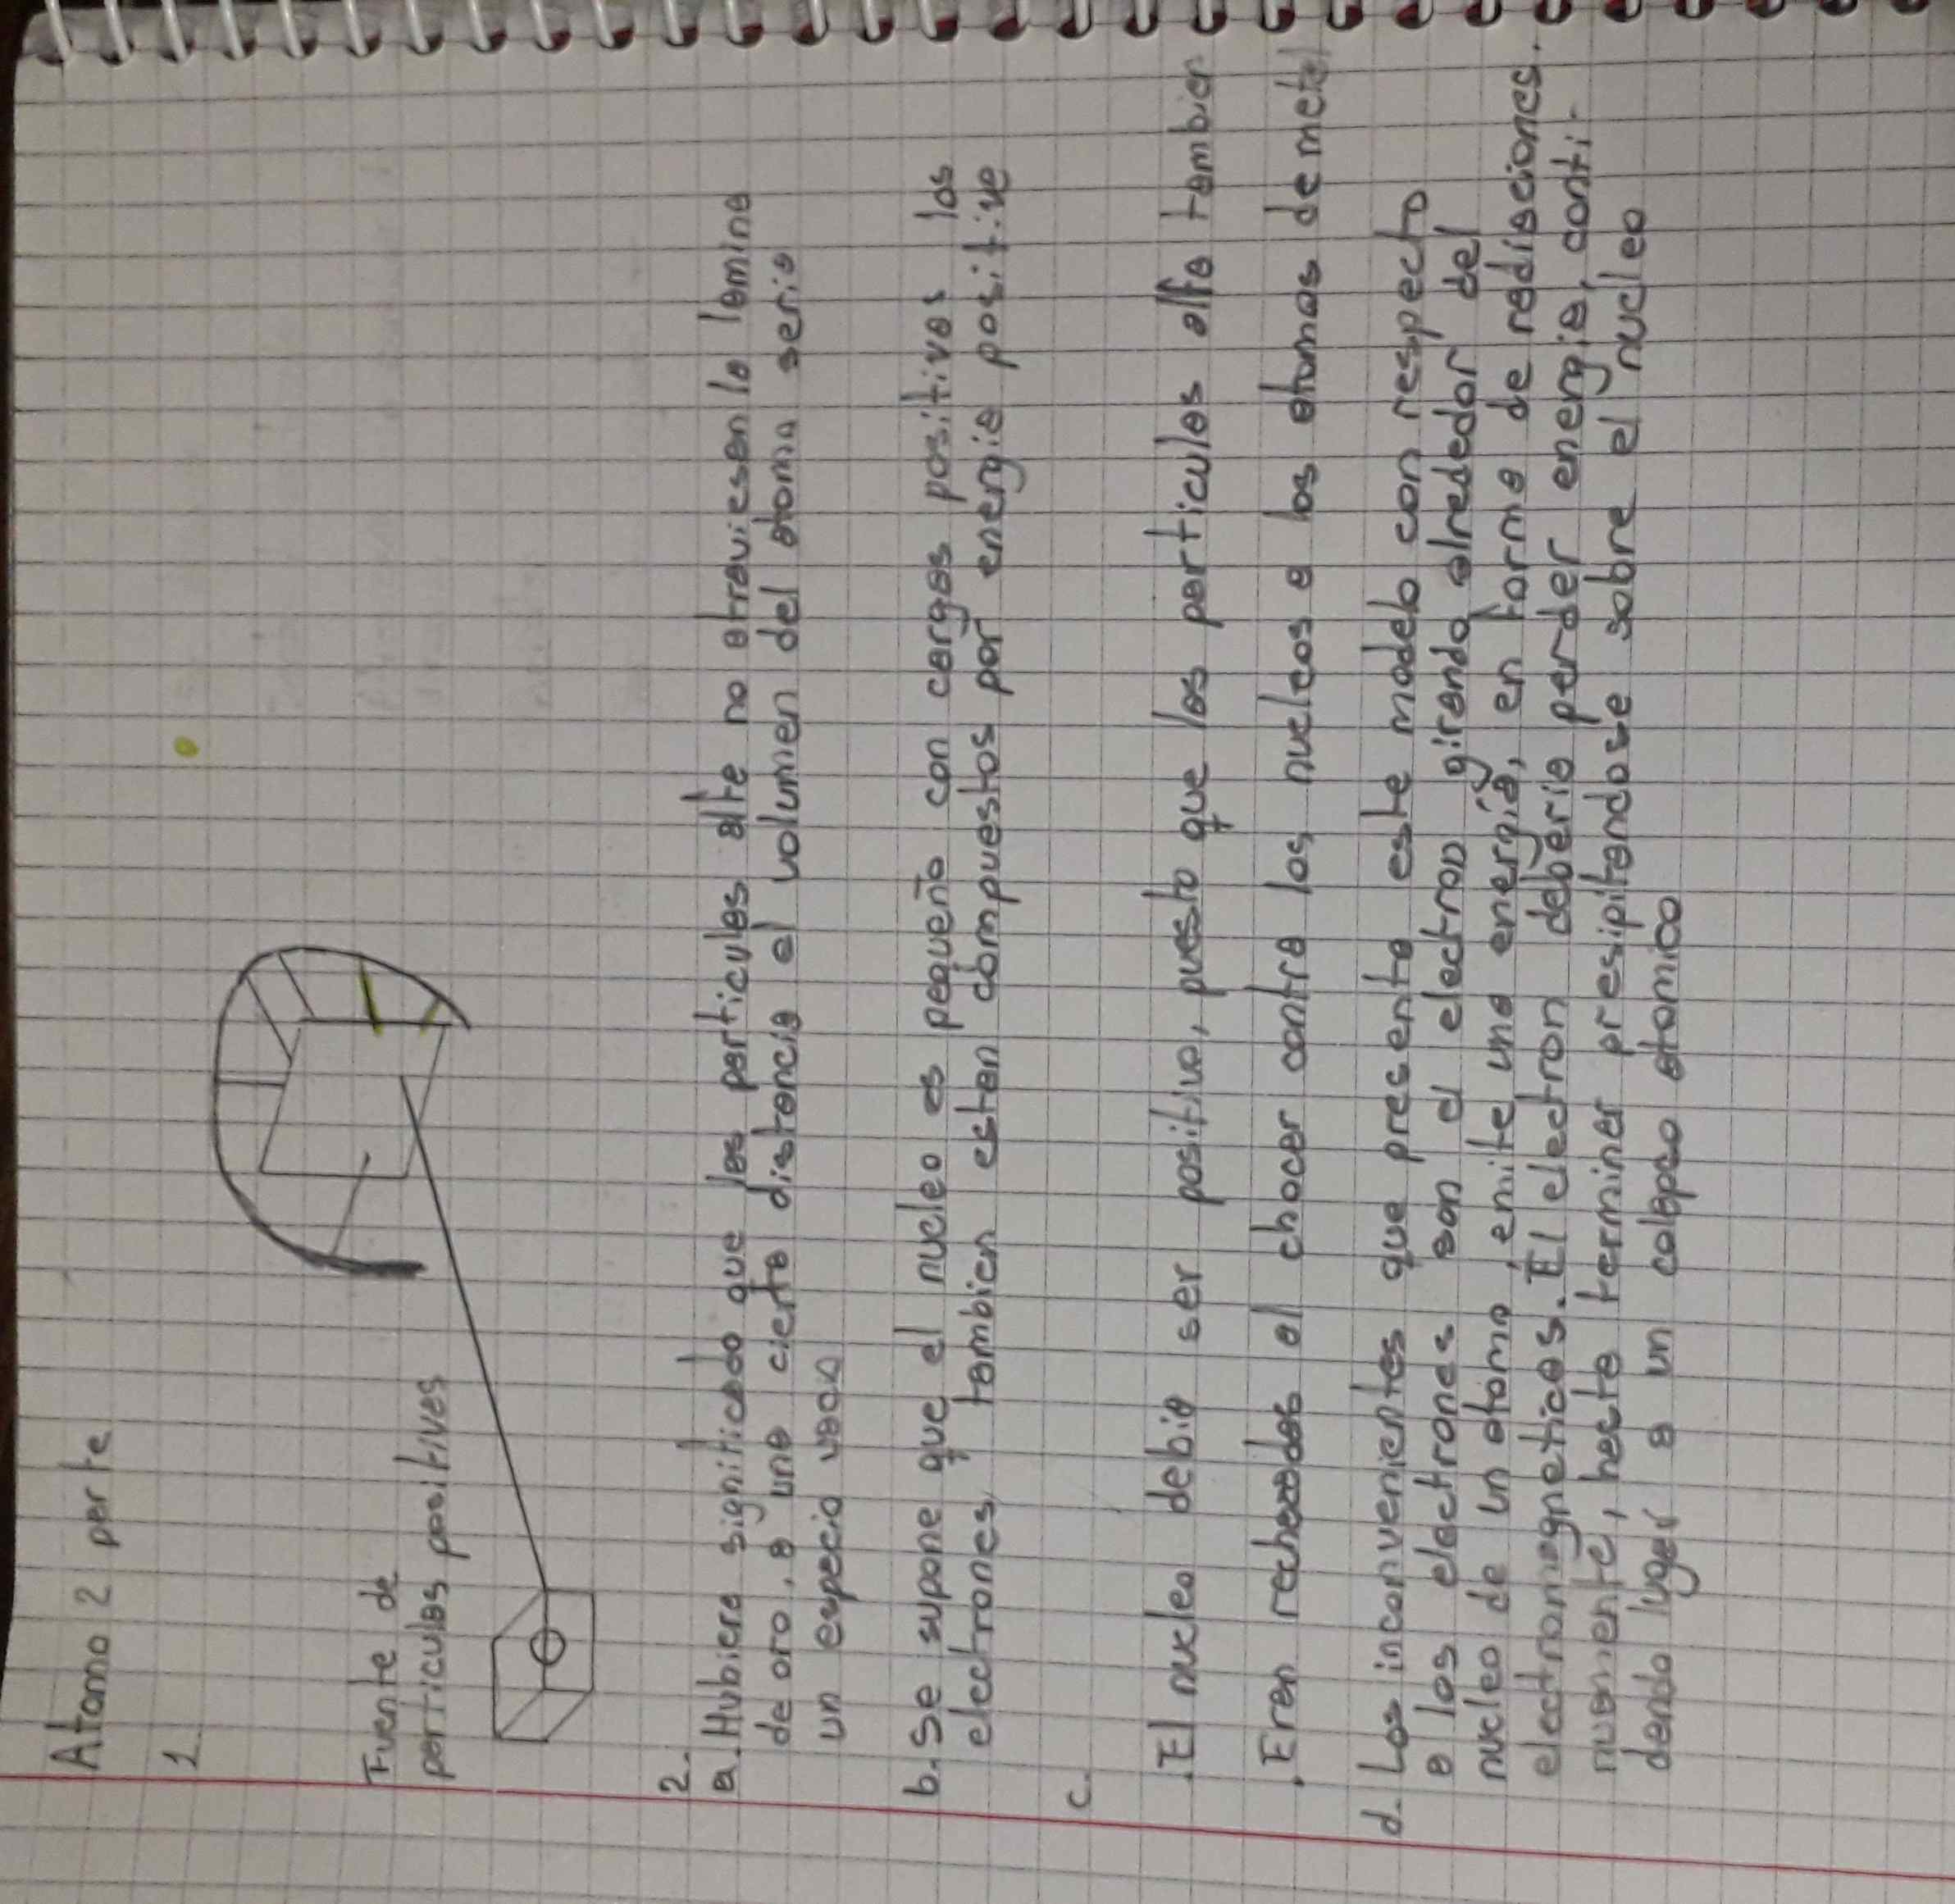 Atomo 2 parte
1.
Fuente de
particulas positivas
2.
a. Hubiera significado que las particulas alfa no atraviesan la lamina
de oro, a una cierta distancia el volumen del atomo seria
un espacio vacio
b. Se supone que el nucleo es pequeño con cargas positivas los
electrones tambien estan compuestos por energia positiva
c.
. El nucleo debia ser positivo, puesto que las particulas alfa tambien
. Eran rechazadas al chocar contra los nucleos a los atomos de metal
d. Los inconvenientes que presenta este modelo con respecto
a los electrones son el electron girando alrededor del
nucleo de un atomo, emite una energia, en forma de radiaciones
electromagneticas. El electron deberia perder energia, conti-
nuamente, hasta terminar presipitandose sobre el nucleo
dando lugar a un colapso atomico